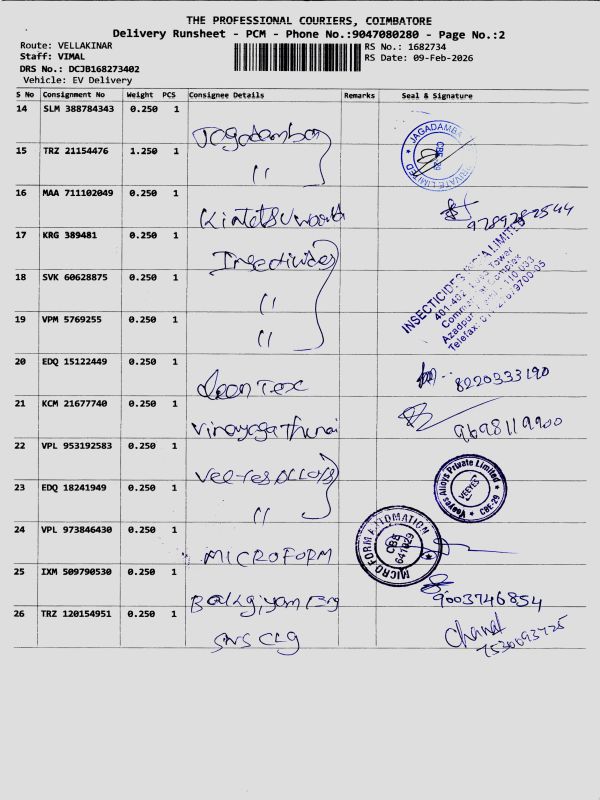 THE PROFESSIONAL COURIERS, COIMBATORE
Delivery Runsheet - PCM - Phone No.:9047080280 - Page No.:2
Route: VELLAKINAR
RS No.: 1682734
Staff: VIMAL
RS Date: 09-Feb-2026
DRS No.: DCJB168273402
Vehicle: EV Delivery
S No Consignment No Weight PCS Consignee Details Remarks Seal & Signature
14 SLM 388784343 0.250 1
Jagadamba
JAGADAMBA
PRIVATE LIMITED
CBE 29
15 TRZ 21154476 1.250 1
"
16 MAA 711102049 0.250 1
17 KRG 389481 0.250 1
Insecticides
INSECTICIDES INDIA LIMITED
401-402, Lusa Tower
Commercial Complex
Azadpur 110 033
Telefax: 27679700-05
18 SVK 60628875 0.250 1
"
19 VPM 5769255 0.250 1
"
20 EDQ 15122449 0.250 1
Tex
8220333190
21 KCM 21677740 0.250 1
Vinayaga Thunai
9698119900
22 VPL 953192583 0.250 1
Alloys
Veeyes Alloys Private Limited
VEEYES
CBE-29
23 EDQ 18241949 0.250 1
"
24 VPL 973846430 0.250 1
MICROFORM
MICRO FORM
CBE
641029
25 IXM 509790530 0.250 1
9003746854
26 TRZ 120154951 0.250 1
SNS CLG